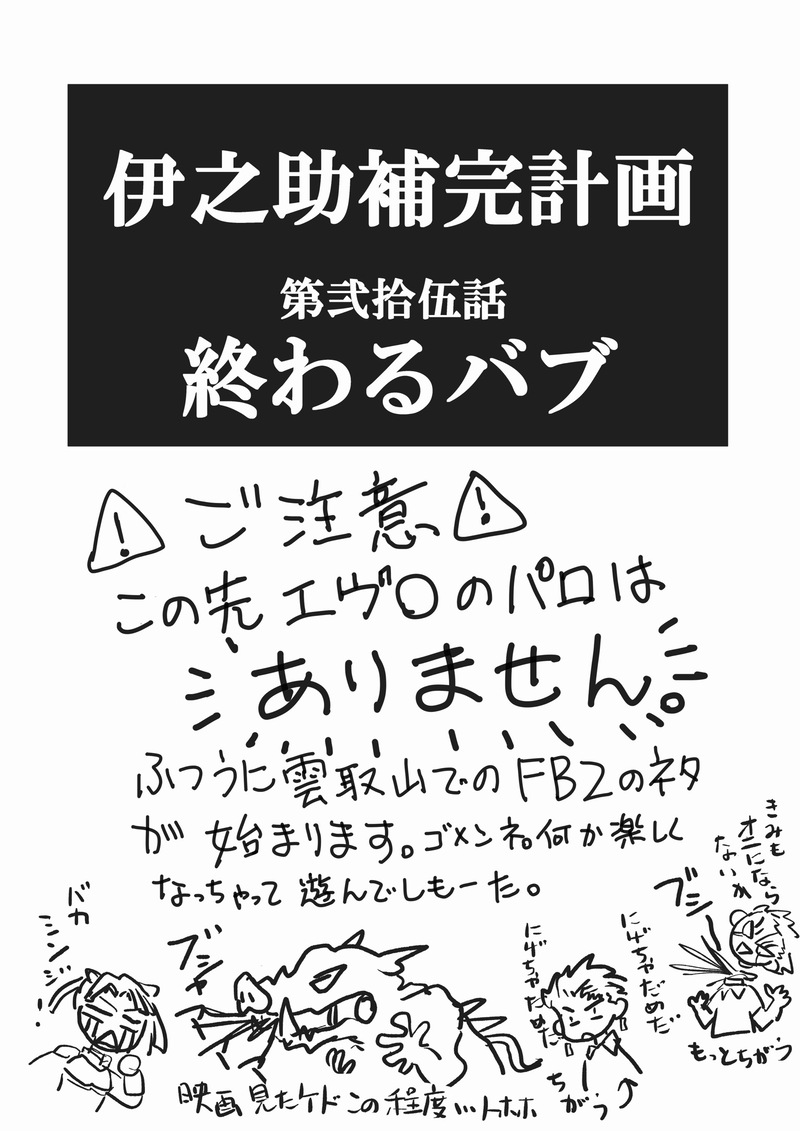 伊之助補完計画
第弐拾伍話
終わるバブ
ご注意
この先エヴ〇のパロは
ありません。
ふつうに雲取山でのFB2のネタ
が始まります。ゴメンネ。何か楽しく
なっちゃって遊んでしもーた。
バカ
シンジ!
ブシャ
にげちゃだめだ
にげちゃだめだ
ブシー
きみも
オニになら
ないか
もっとちがう
ちがう
映画見たケドこの程度…トホホ